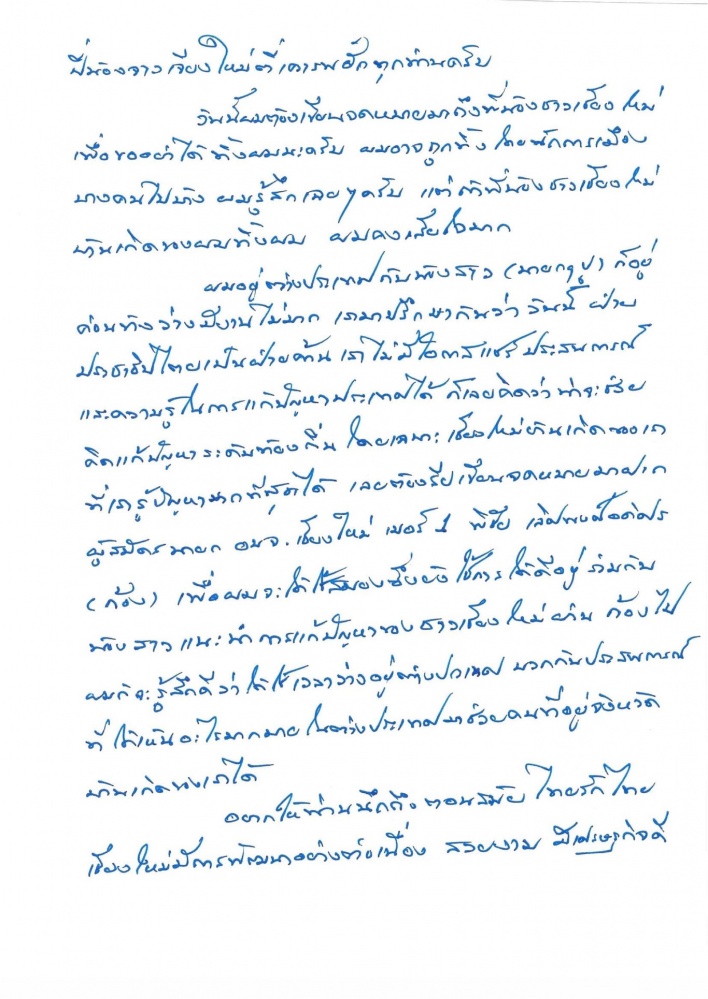 พี่น้องจาวเจียงใหม่ตี้เคารพฮักทุกท่านครับ
วันนี้ผมต้องเขียนจดหมายมาถึงพี่น้องชาวเชียงใหม่
เพื่อขออย่าได้ทิ้งผมนะครับ ผมอาจถูกทิ้งโดยนักการเมือง
บางคนไปบ้าง ผมรู้สึกเฉยๆครับ แต่ถ้าพี่น้องชาวเชียงใหม่
บ้านเกิดของผมทิ้งผม ผมคงเสียใจมาก
ผมอยู่ต่างประเทศกับน้องสาว (นายกฯปู) ก็อยู่
ค่อนข้างว่างมีงานไม่มาก เรามาปรึกษากันว่า วันนี้ ฝ่าย
ประชาธิปไตยเป็นฝ่ายค้าน เราไม่มีโอกาสแชร์ ประสบการณ์
และความรู้ในการแก้ปัญหาประเทศได้ ก็เลยคิดว่าน่าจะช่วย
คิดแก้ปัญหาระดับท้องถิ่น โดยเฉพาะ เชียงใหม่บ้านเกิดของเรา
ที่เรารู้ปัญหามากที่สุดได้ เลยต้องรีบเขียนจดหมายมาฝาก
ผู้สมัครนายก อบจ. เชียงใหม่ เบอร์ 1 พิชัย เลิศพงศ์อดิศร
(ก้อง) เพื่อผมจะได้ใช้สมองซึ่งยังใช้การได้ดีอยู่ ร่วมกับ
น้องสาว แนะนำการแก้ปัญหาของชาวเชียงใหม่ผ่าน ก้องไป
ผมก็จะรู้สึกดีว่า ได้ใช้เวลาว่างอยู่ต่างประเทศ บวกกับประสบการณ์
ที่ได้เห็นอะไรมากมายในต่างประเทศมาช่วยคนที่อยู่จังหวัด
บ้านเกิดของเราได้
อยากให้ท่านนึกถึงตอนสมัย ไทยรักไทย
เชียงใหม่มีการพัฒนาอย่างต่อเนื่อง สวยงาม มีเศรษฐกิจดี